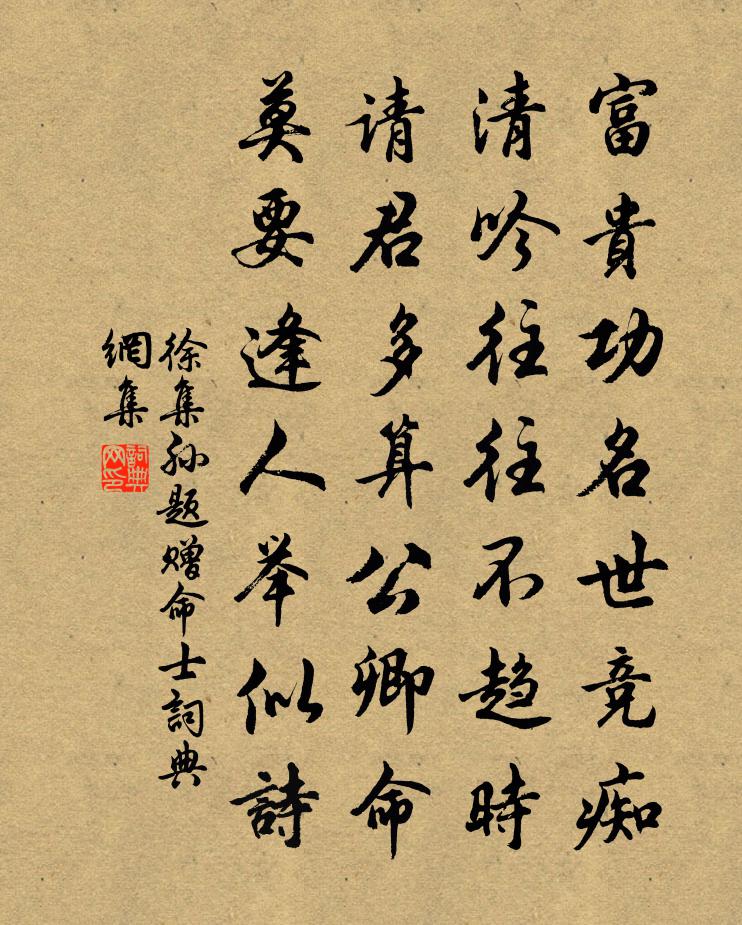 富貴功名世竞痴
清吟往往不趋時
请君多算公卿命
莫要逢人举似詩
徐集孙题赠命士詞典
網集
詞典网印